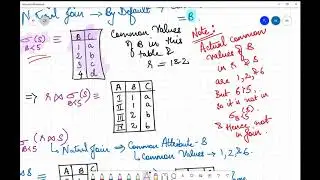 Natural Join → By Default
= B
σ B<5 (S)
B C
1 a
2 b
3 c
4 d
Common Values
of B in this
table &
r = 1 & 2
Note:
Actual common
values of B
in r & S
are 1, 2, & 6
But 6>5.
so it is not in
σ B<5 (S)
& Hence not
in join.
≡ r ⋈ σ B<5 (S)
A B C
I 1 a
II 1 a
III 2 b
IV 2 b
σ B<5 (r ⋈ S)
↳ Natural Join → Common Attribute - B
↳ Common Values → 1, 2, & 6.
A B C